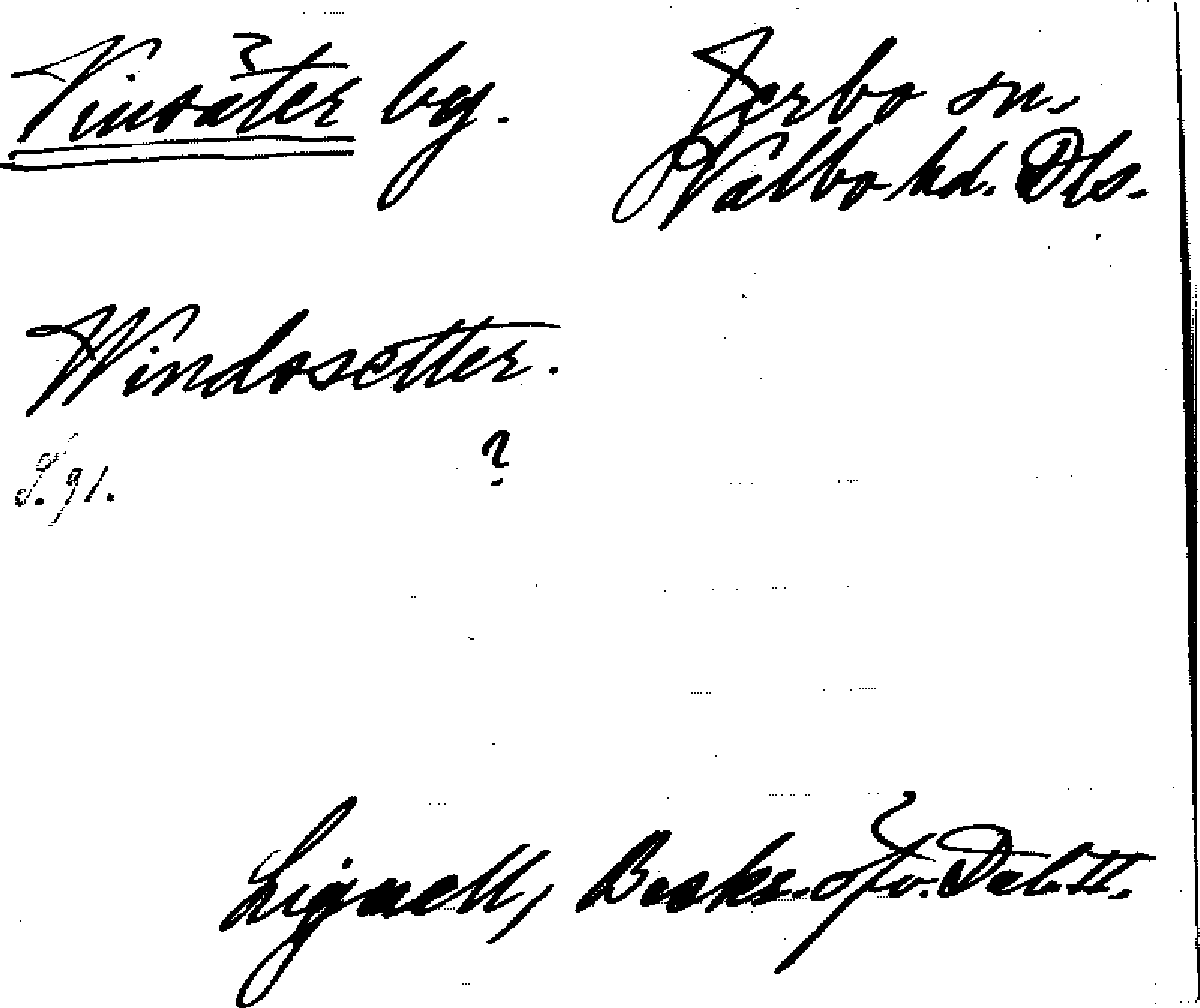 Vinsäter by. Jerbo sn.
Valbo hd. Dls.
Windosetter.
S. 91. ?
Lignell, Beskr. öfv. Dal. II.